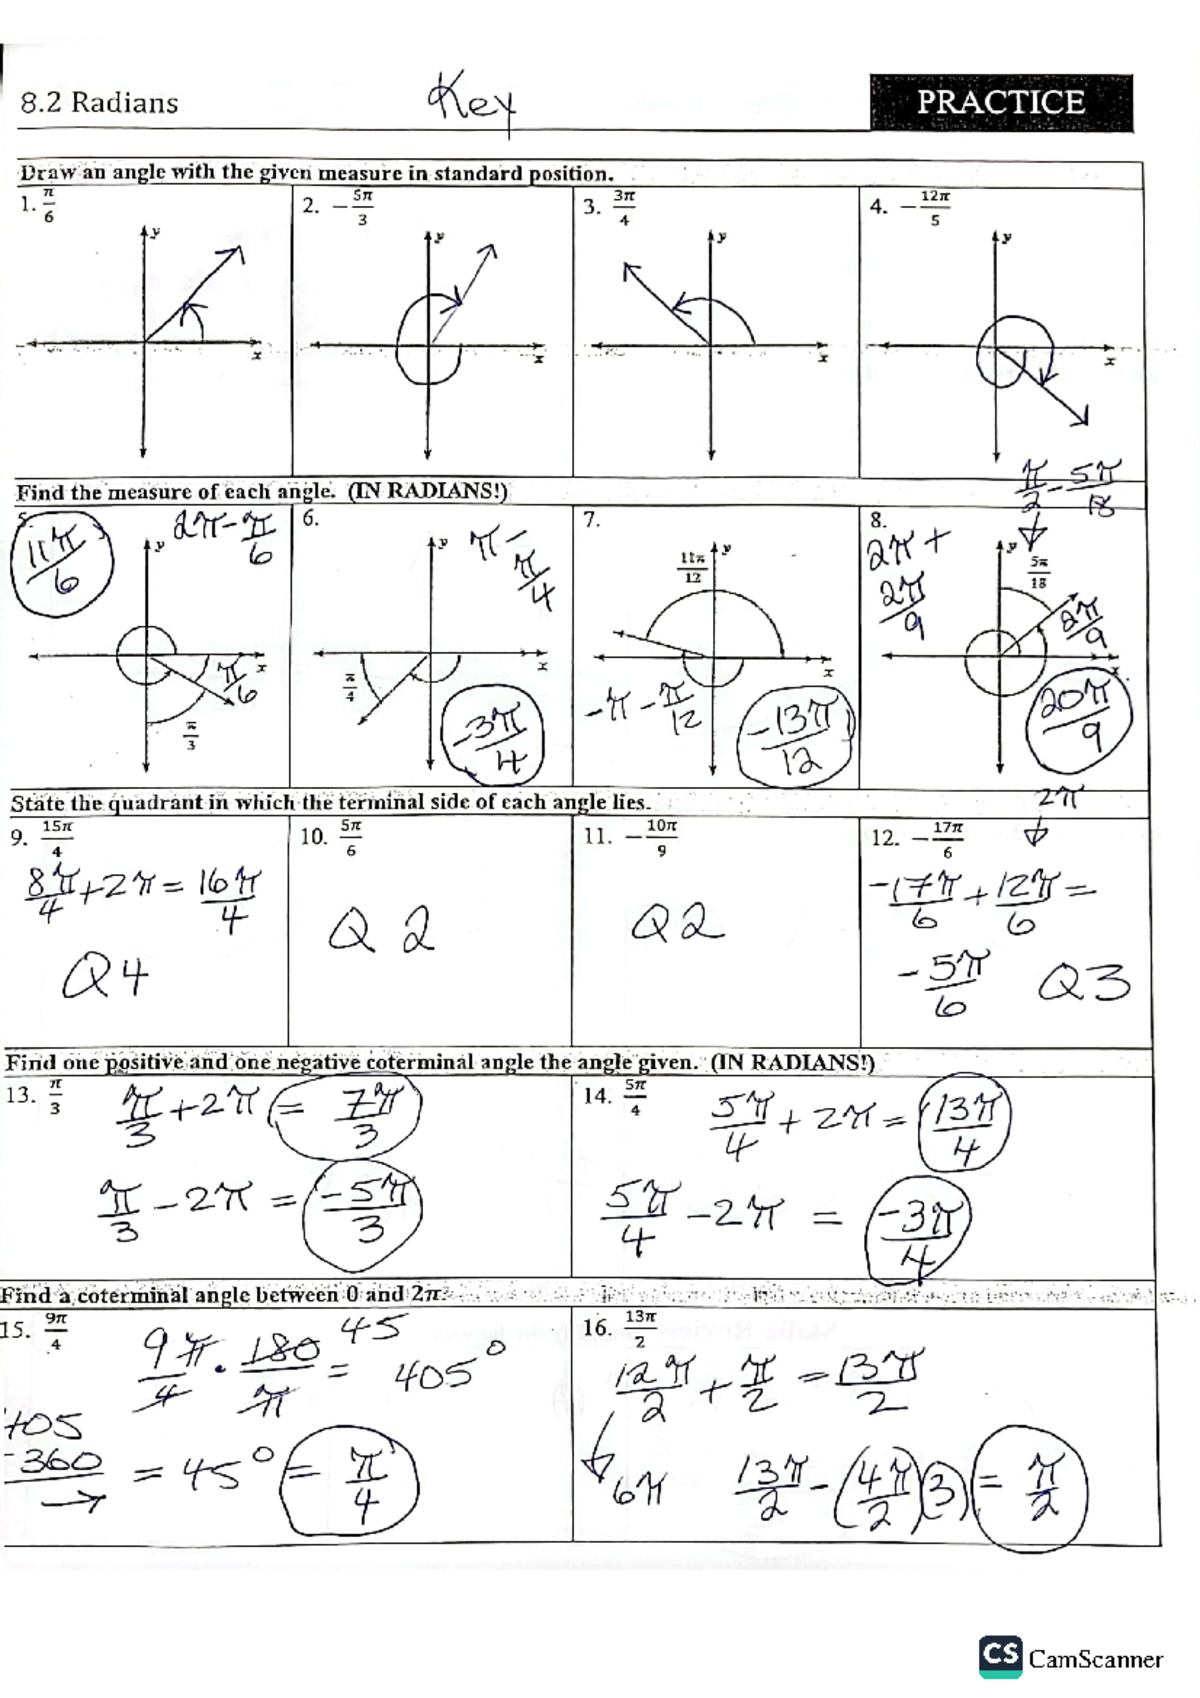 8.2 Radians Key PRACTICE
Draw an angle with the given measure in standard position.
1. π/6 2. −5π/3 3. 3π/4 4. −12π/5
y y y y
x x x x
π/2 − 5π/18
Find the measure of each angle. (IN RADIANS!)
5. 11π/6 2π − π/6 y π/6 x π/3
6. π − π/4 y x π/4 −3π/4
7. 11π/12 y x −π − π/12 −13π/12
8. 2π + 2π/9 y 5π/18 2π/9 x 20π/9
State the quadrant in which the terminal side of each angle lies.
9. 15π/4
8π/4 + 2π = 16π/4
Q4
10. 5π/6
Q 2
11. −10π/9
Q2
12. −17π/6 2π
−17π/6 + 12π/6 =
−5π/6 Q3
Find one positive and one negative coterminal angle the angle given. (IN RADIANS!)
13. π/3 π/3 + 2π = 7π/3
π/3 − 2π = −5π/3
14. 5π/4 5π/4 + 2π = 13π/4
5π/4 − 2π = −3π/4
Find a coterminal angle between 0 and 2π.
15. 9π/4 9π/4 · 180/π = 405° 45
405
−360 = 45° = π/4
16. 13π/2
12π/2 + π/2 = 13π/2
6π 13π/2 − (4π/2)(3) = π/2
CS CamScanner